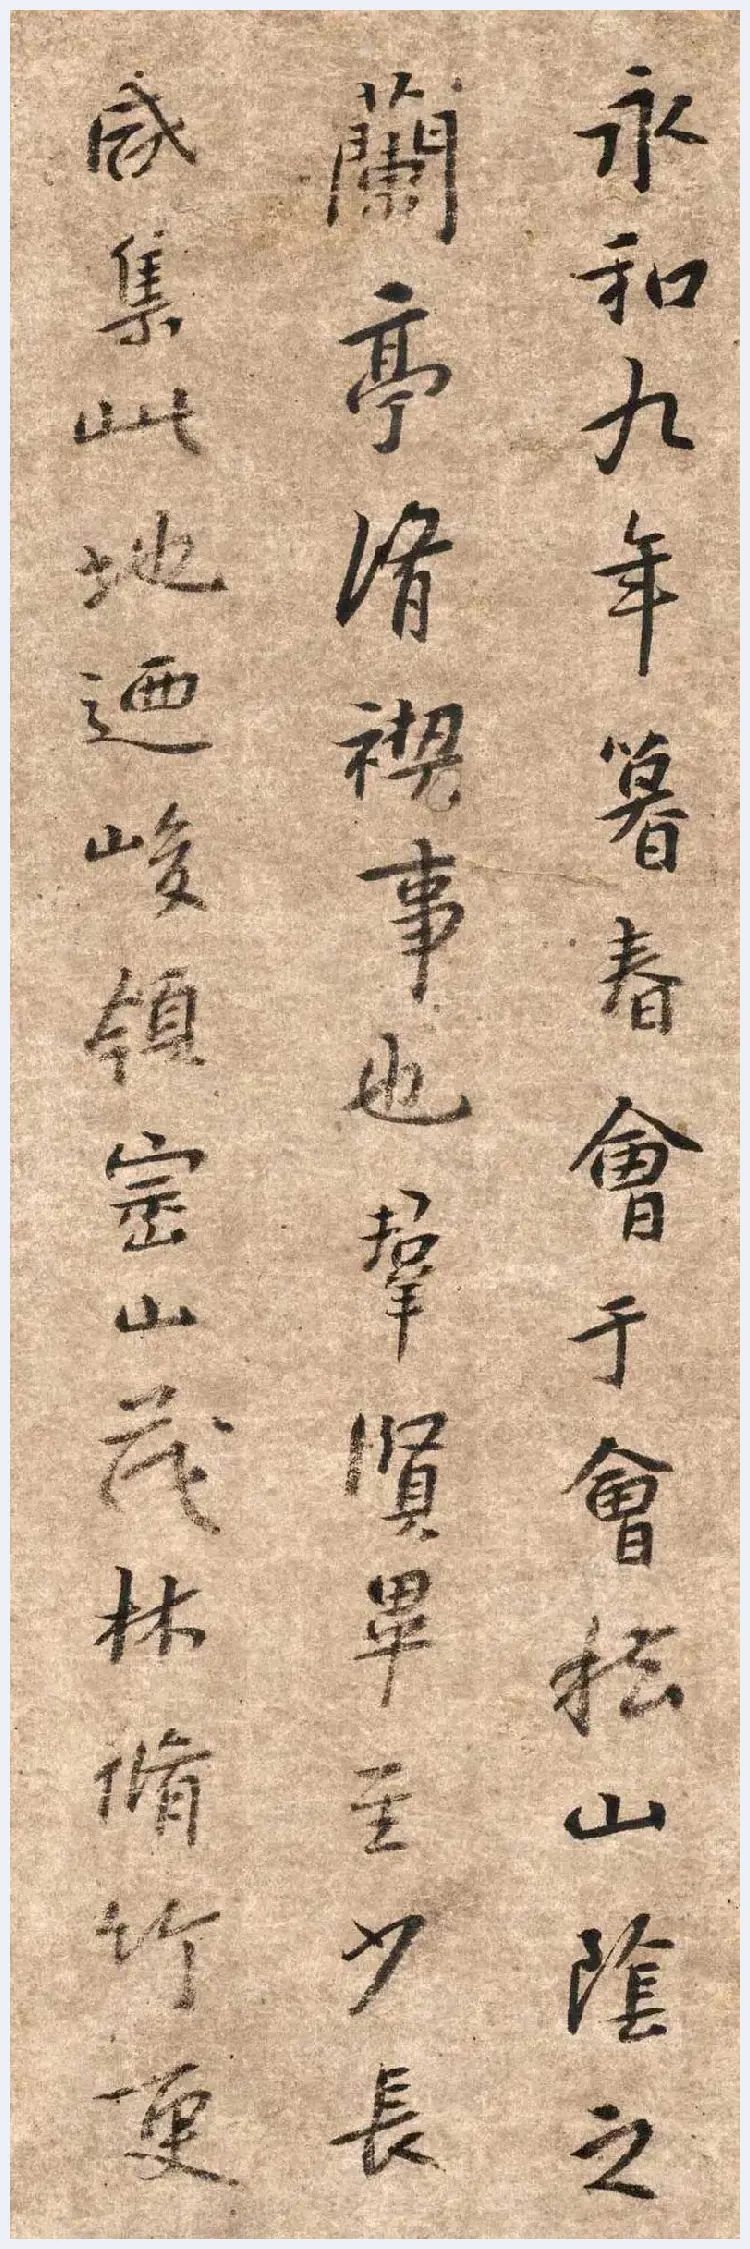 永和九年暮春會于會稽山陰之
蘭亭脩禊事也羣賢畢至少長
咸集此地迺峻領崇山茂林脩竹更